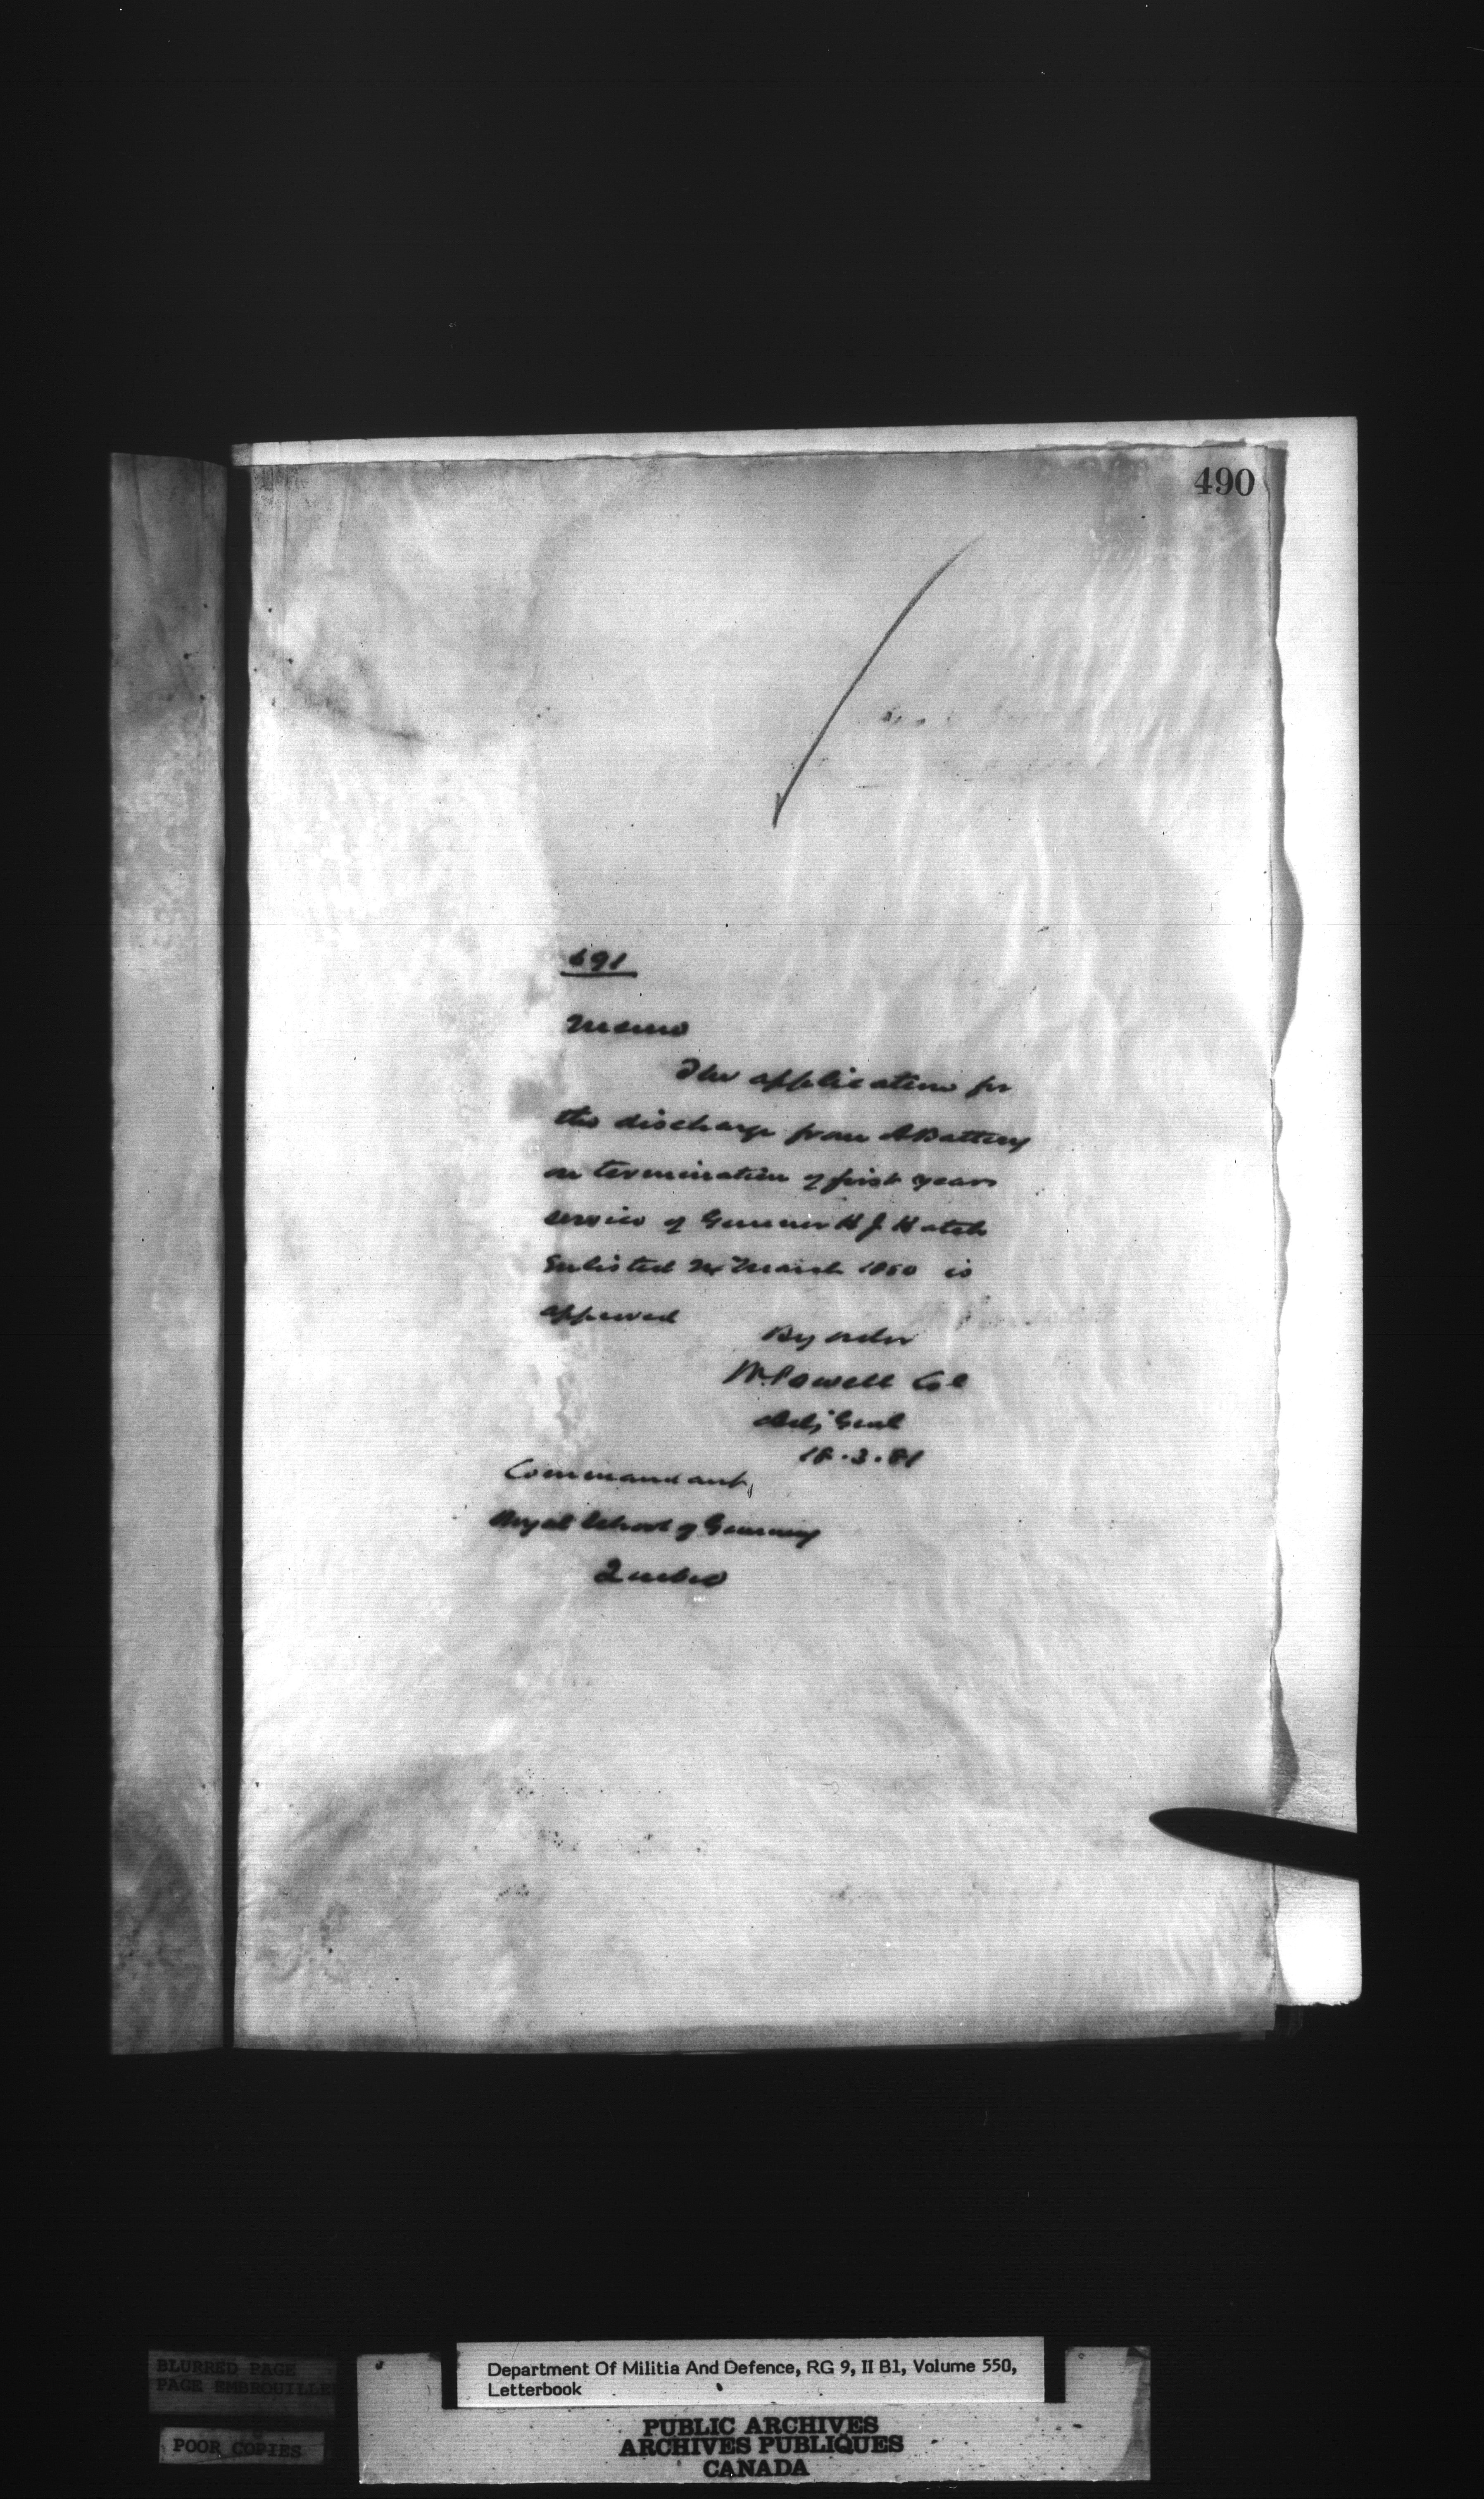 490
691
Memo
The application for
the discharge from A Battery
on termination of first years
service of Gunner H J Hatch
Enlisted March 1880 is
approved
By order
W. Powell Col
Adj Genl
18.3.81
Commandant,
Royal School of Gunnery
Quebec
BLURRED PAGE
PAGE EMBROUILLEE
POOR COPIES
Department Of Militia And Defence, RG 9, II B1, Volume 550,
Letterbook
PUBLIC ARCHIVES
ARCHIVES PUBLIQUES
CANADA